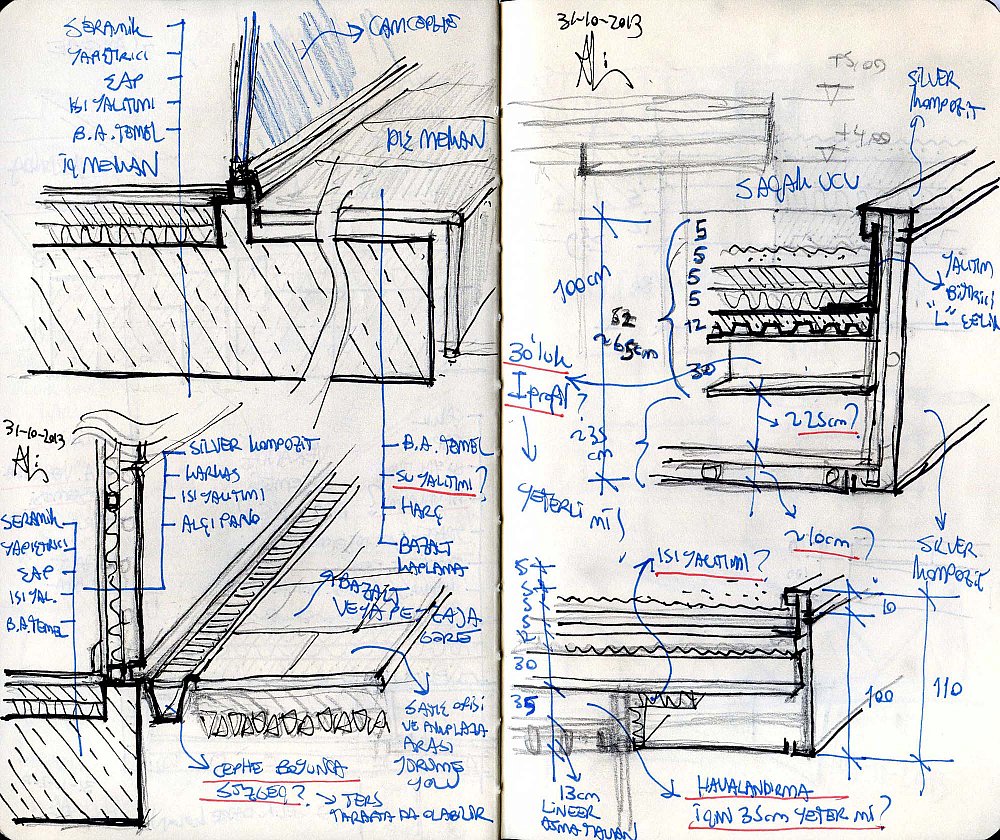 SERAMİK
YAPIŞTIRICI
ŞAP
ISI YALITIMI
B.A. TEMEL
İÇ MEKAN
CAMCEPHE
DIŞ MEKAN
B.A. TEMEL
SU YALITIMI?
HARÇ
BAZALT
KAPLAMA
31-10-2013
SİLVER KOMPOZİT
KARKAS
ISI YALITIMI
ALÇI PANO
SERAMİK
YAPIŞTIRICI
ŞAP
ISI YAL.
B.A. TEMEL
BAZALT
VEYA PEYZAJA
GÖRE
SATIŞ OFİSİ
VE
ARASI
YÜRÜME
YOLU
CEPHE BOYUNCA
SÜZGEÇ?
TERS
TARAFTA DA OLABİLİR
31-10-2013
+5,00
+4,00
SİLVER
KOMPOZİT
SAÇAK UCU
5
5
5
5
12
30
100cm
~65cm
YALITIM
BİTİRİCİ
"L" ÇELİK
30'luk
I profil?
YETERLİ Mİ?
~35
cm
~25cm?
~10cm?
SİLVER
KOMPOZİT
ISI YALITIMI?
5
5
5
5
12
30
35
10
100
110
13cm
LİNEER
ASMA TAVAN
HAVALANDIRMA
İÇİN 35cm YETER Mİ?